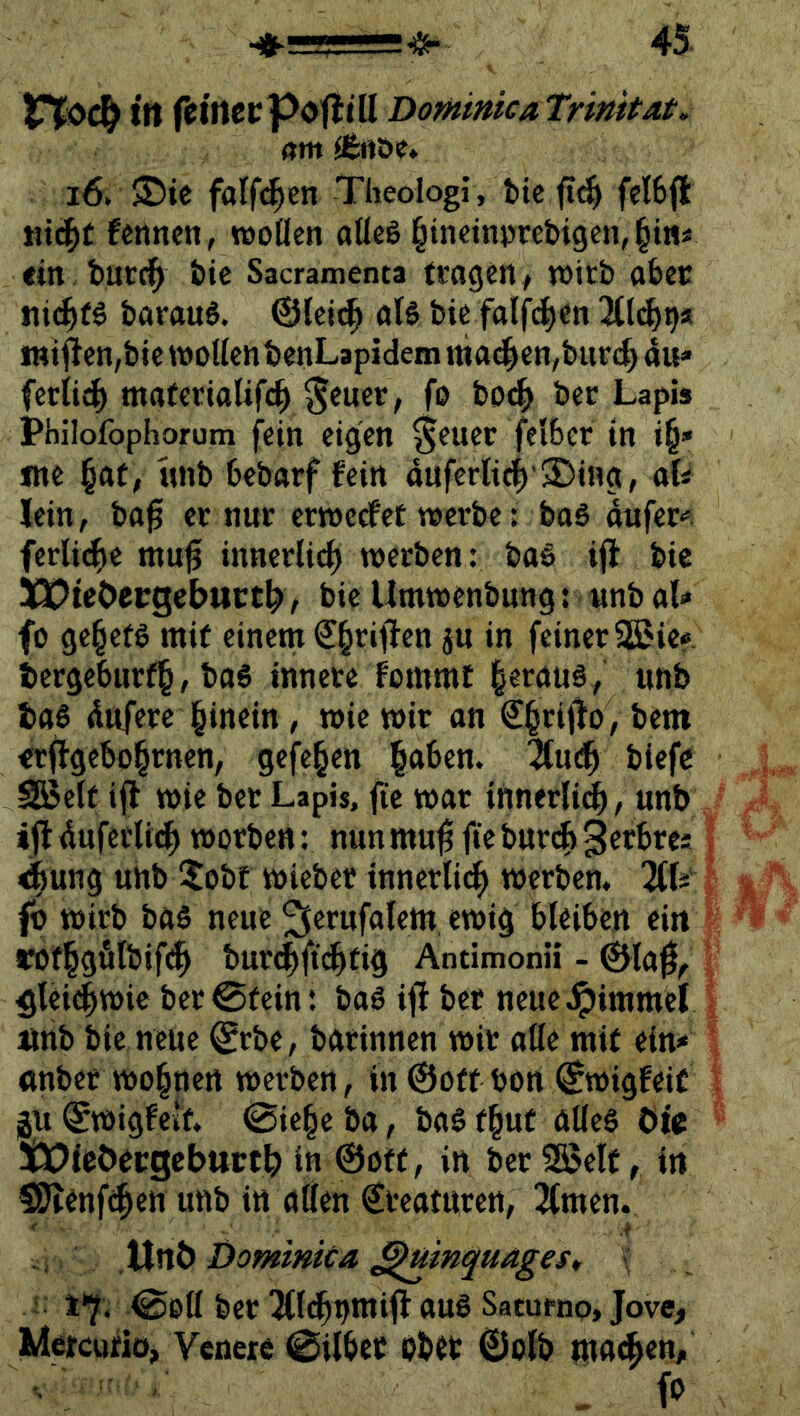 45
Noch in seiner Postill Dominica Trinitat.
am Ende.
16. Die falschen Theologi, die sich selbst
nicht kennen, wollen alles hineinpredigen, hin-
ein durch die Sacramenta tragen, wird aber
nichts daraus. Gleich als die falschen Alchy-
misten, die wollen den Lapidem machen, durch äu-
serlich materialisch Feuer, so doch der Lapis
Philosophorum sein eigen Feuer selber in ih-
me hat, und bedarf kein äuserlich Ding, al-
lein, daß er nur erwecket werde: das äuser-
serliche muß innerlich werden: das ist die
Wiedergeburth, die Umwendung: und al-
so gehets mit einem Christen zu in seiner Wie-
dergeburth, das innere kommt heraus, und
das äusere hinein, wie wir an Christo, dem
erstgebohrnen, gesehen haben. Auch diese
Welt ist wie der Lapis, sie war innerlich, und
ist äuserlich worden: nun muß sie durch Zerbre-
chung und Todt wieder innerlich werden. Al-
so wird das neue Jerusalem ewig bleiben ein
rothgüldisch durchsichtig Antimonii-Glaß,
gleichwie der Stein: das ist der neue Himmel
und die neue Erde, darinnen wir alle mit ein-
ander wohnen werden, in Gott von Ewigkeit
zu Ewigkeit. Siehe da, das thut alles die
Wiedergeburth in Gott, in der Welt, in
Menschen und in allen Creaturen, Amen.
Und Dominica Quinquages.
17. Soll der Alchymist aus Saturno, Jove,
Mercurio, Venere Silber oder Gold machen,
so